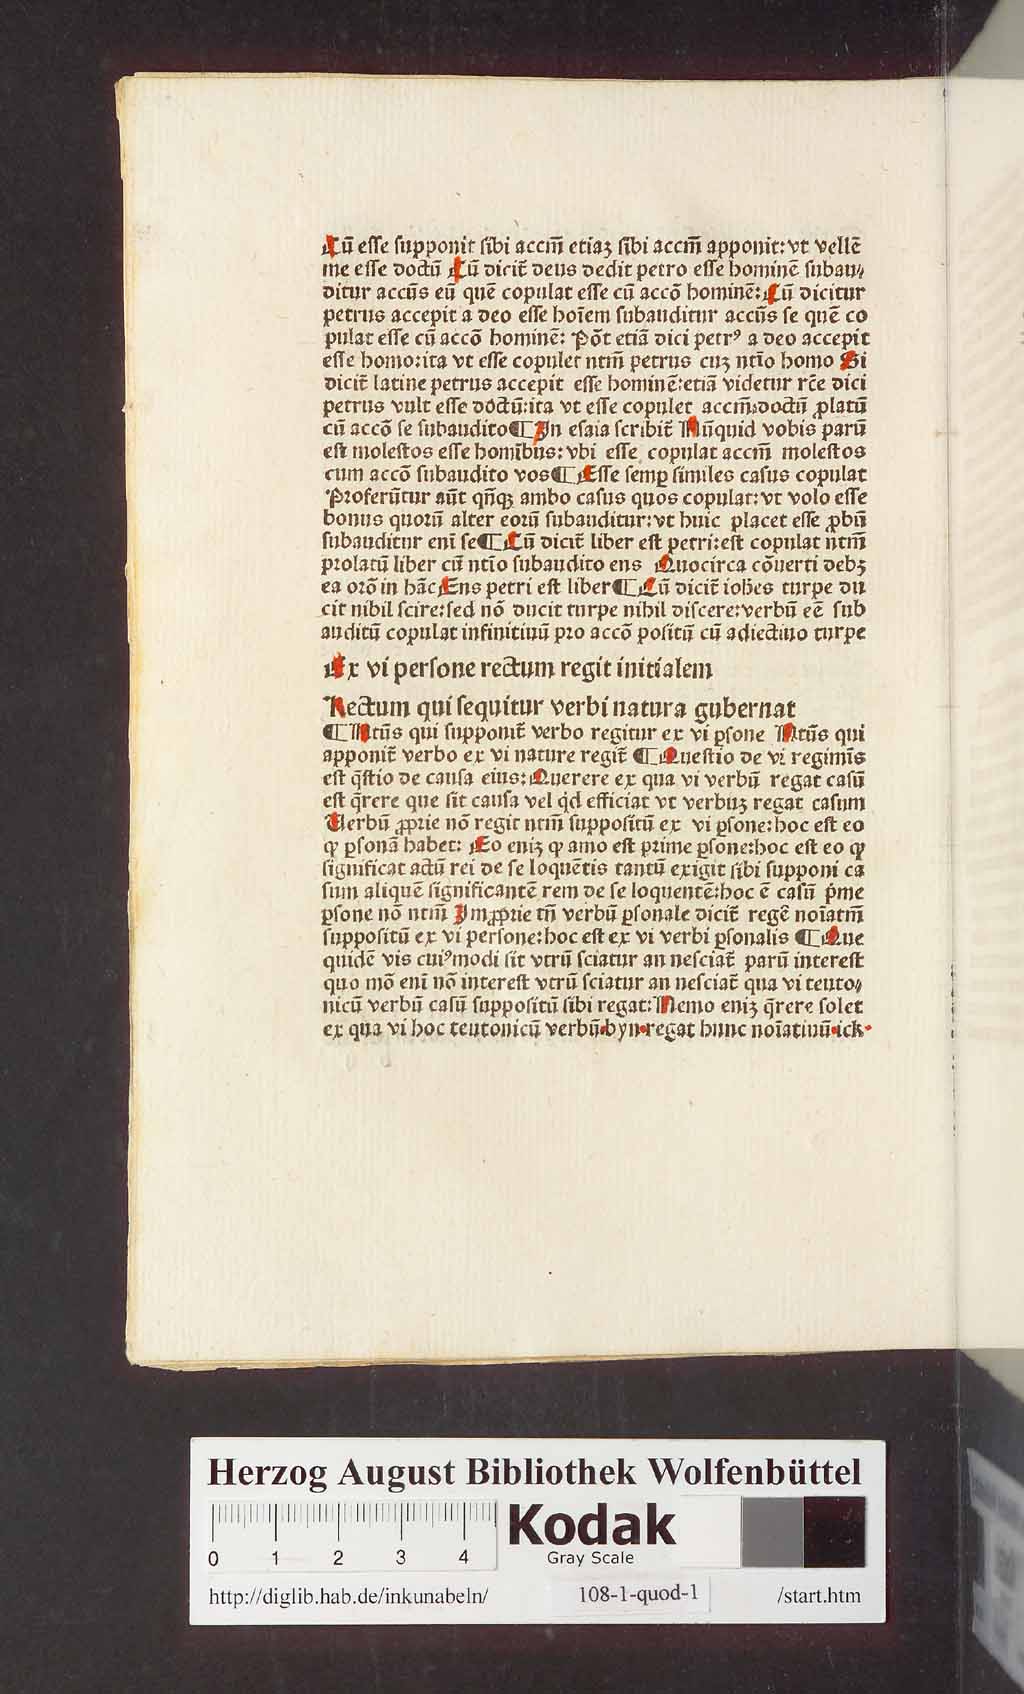 Cū esse supponit sibi accm̄ etiaꝫ sibi accm̄ apponit: vt vellē
me esse doctū Cū dicit̄ deus dedit petro esse hominē subau⸗
ditur accūs eū quē copulat esse cū accō hominē: Cū dicitur
petrus accepit a deo esse hoīem subauditur accūs se quē co
pulat esse cū accō hominē: Pōt etiā dici petrꝰ a deo accepit
esse homo: ita vt esse copulet ntm̄ petrus cuꝫ ntīo homo Si
dicit̄ latine petrus accepit esse hominē: etiā videtur rc̄e dici
petrus vult esse doctū: ita vt esse copulet accm̄ doctū ꝓlatū
cū accō se subaudito ¶ In esaia scribit̄ Nūquid vobis parū
est molestos esse homībus: vbi esse copulat accm̄ molestos
cum accō subaudito vos ¶ Esse semꝑ similes casus copulat
Proferūtur aūt qn̄qꝫ ambo casus quos copulat: vt volo esse
bonus quorū alter eorū subauditur: vt huic placet esse ꝓbū
subauditur enī se ¶ Cū dicit̄ liber est petri: est copulat ntm̄
prolatū liber cū ntīo subaudito ens Quocirca cōuerti debꝫ
ea orō in hāc Ens petri est liber ¶ Cū dicit̄ ioh̄es turpe du
cit nihil scire: sed nō ducit turpe nihil discere: verbū eē sub
auditū copulat infinitiuū pro accō positū cū adiectiuo turpe
Ex vi persone rectum regit initialem
Rectum qui sequitur verbi natura gubernat
¶ Ntūs qui supponit̄ verbo regitur ex vi ꝑsone Ntūs qui
apponit̄ verbo ex vi nature regit̄ ¶ Questio de vi regimīs
est q̄stio de causa eius: Querere ex qua vi verbū regat casū
est q̄rere que sit causa vel q̇d efficiat vt verbuꝫ regat casum
Verbū ꝓprie nō regit ntm̄ suppositū ex vi ꝑsone: hoc est eo
ꝙ ꝑsonā habet: Eo eniꝫ ꝙ amo est prime ꝑsone: hoc est eo ꝙ
significat actū rei de se loquētis tantū exigit sibi supponi ca
sum aliquē significantē rem de se loquentē: hoc ē casū p̄me
ꝑsone nō ntm̄ Imꝓprie tn̄ verbū ꝑsonale dicit̄ regē noīatm̄
suppositū ex vi persone: hoc est ex vi verbi ꝑsonalis ¶ Que
quidē vis cuiꝰmodi sit vtrū sciatur an nesciat̄ parū interest
quo mō enī nō interest vtrū sciatur an nesciat̄ qua vi teuto⸗
nicū verbū casū suppositū sibi regat: Nemo eniꝫ q̄rere solet
ex qua vi hoc teutonicū verbū·byn·regat hunc noīatiuū·ick·
Herzog August Bibliothek Wolfenbüttel
0 1 2 3 4
Kodak
Gray Scale
http://diglib.hab.de/inkunabeln/ 108-1-quod-1 /start.htm